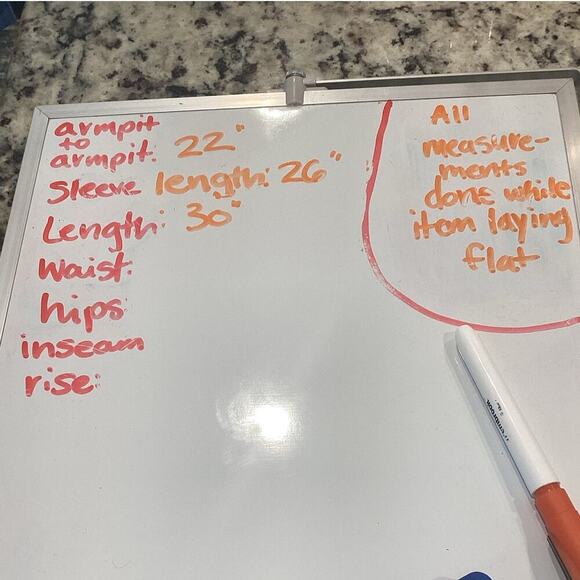 armpit
to
armpit: 22"
Sleeve length: 26"
Length: 30"
Waist:
hips
inseam
rise:
All
measure-
ments
done while
item laying
flat